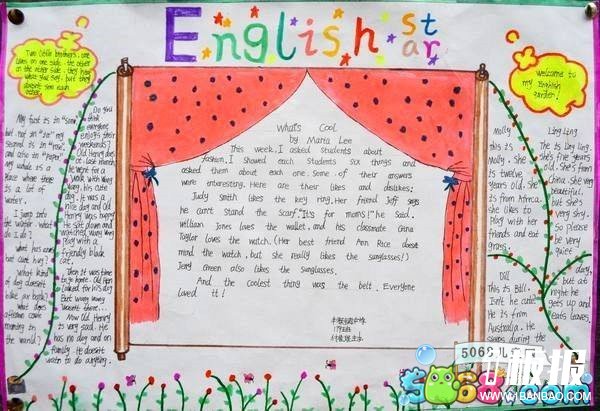 English star
Two little brothers, one
lives on one side, the other
on the other side, they hear
what you say, but they
doesn't see each
other.
Welcome to
my English
garden!
What's Cool
by Maria Lee
This week, I asked students about
fashion. I showed each students six things and
asked them about each one. Some of their answers
were interesting. Here are their likes and dislikes:
Judy Smith likes the key ring. Her friend Jeff says
he can't stand the scarf. "It's for moms!" he said.
William Jones loves the wallet, and his classmate Gina
Taylor loves the watch. (Her best friend Ann Rice doesn't
mind the watch, but she really likes the sunglasses!)
Jerry Green also likes the sunglasses.
And the coolest thing was the belt. Everyone
loved it!
My first is in "snow"
but not in "ice" my
second is in
and also in "paper"
my whole is a
place where there
is a lot of
water.
I jump into
the water what
do I do?
what has ears
but can't hear?
What kind
of dog doesn't
bite or bark?
What does
afternoon come
morning in
the world?
Do you
think
everyone
enjoys their
weekends?
Old Henry does
at last month
he went for a
walk with
dog, his cute
dog. It was a
nice day and Old
Henry was happy.
He sat down and
watched
play with a
friendly black
cat.
Then it was time
to go home. Old Henry
looked for his dog
But
wasn't there.
Now Old Henry
is very sad. He
has no dog and no
family. He doesn't
want to do anything.
Molly
This is
Molly. She
is twelve
years old. She
is from Africa.
She likes to
play with her
friends and eat
grass.
Ling Ling
This is Ling Ling.
She's five years
old. She's from
China. She very
beautiful,
but she's
very shy.
So please
be very
quiet
Bill
This is Bill.
Isn't he cute.
He is from
Australia. He
sleeps during the
day,
but at
night he
gets up and
eats leaves.
WWW.1BANBAO.COM